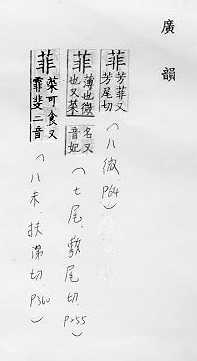 廣韻
菲 芳菲又芳尾切 (八微 P64)
菲 薄也微也又菜名又音妃 (七尾, 敷尾切 P255)
菲 菜可食又霏斐二音 (八未, 扶沸切 P360)